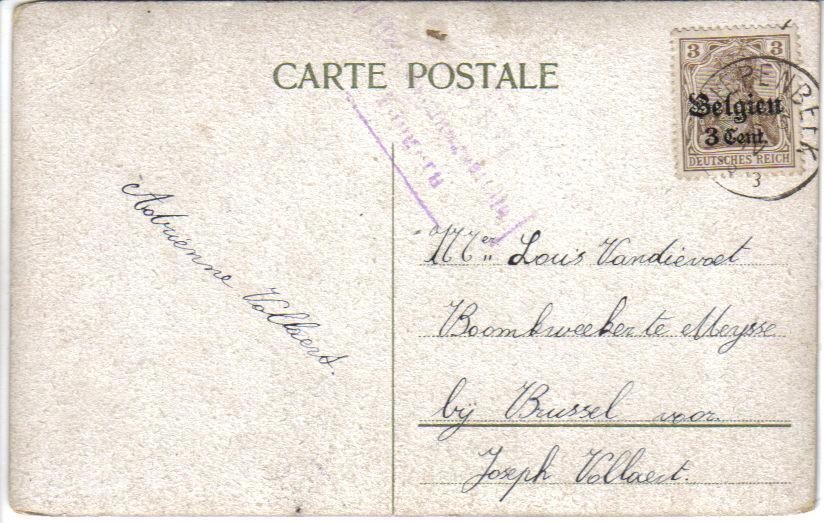 CARTE POSTALE
3 3
Belgien
3 Cent.
DEUTSCHES REICH
3
Adrienne Vollaert.
Mr. Louis Vandievoet
Boomkweeker te Meysse
bij Brussel voor
Joseph Vollaert.